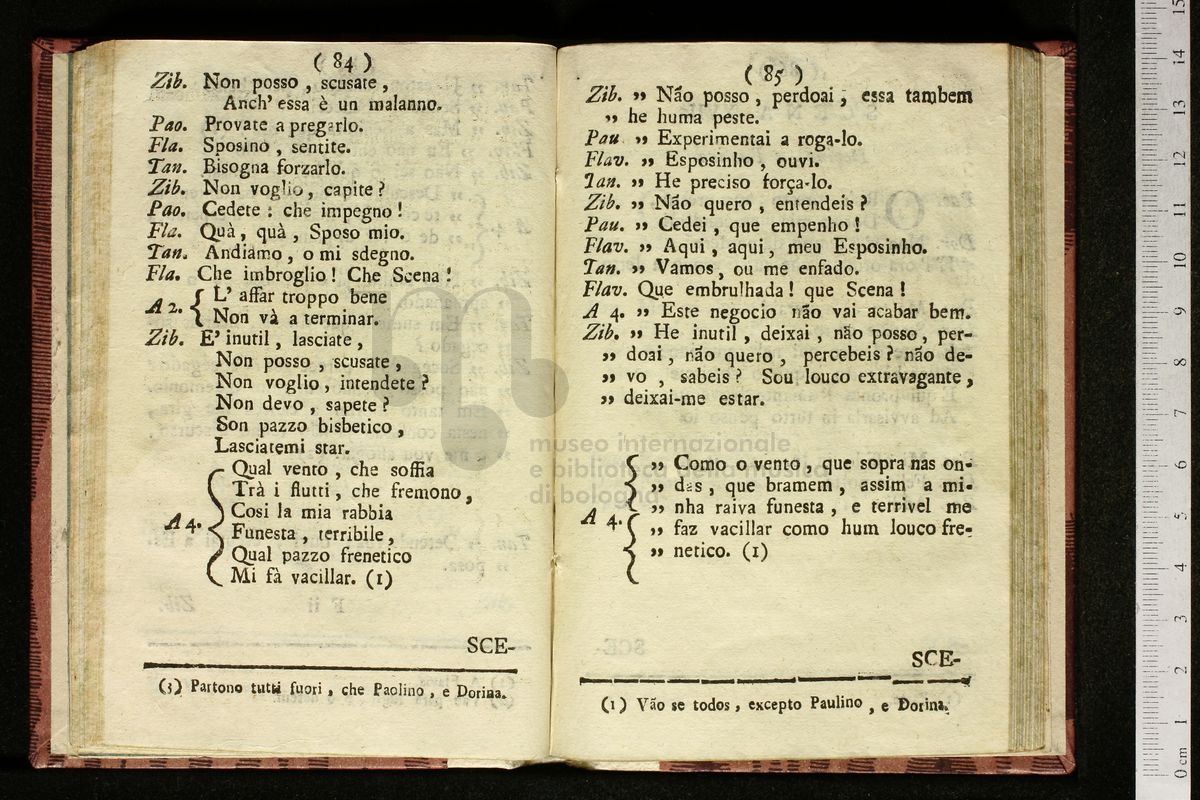 ( 84 )
Zib. Non posso , scusate ,
Anch' essa è un malanno.
Pao. Provate a pregarlo.
Fla. Sposino , sentite.
Tan. Bisogna forzarlo.
Zib. Non voglio , capite ?
Pao. Cedete : che impegno !
Fla. Quà , quà , Sposo mio.
Tan. Andiamo , o mi sdegno.
Fla. Che imbroglio ! Che Scena !
A 2. { L' affar troppo bene
Non và a terminar.
Zib. E' inutil , lasciate ,
Non posso , scusate ,
Non voglio , intendete ?
Non devo , sapete ?
Son pazzo bisbetico ,
Lasciatemi star.
Qual vento , che soffia
Trà i flutti , che fremono ,
Cosi la mia rabbia
A 4. { Funesta , terribile ,
Qual pazzo frenetico
Mi fà vacillar. (1)
SCE-
(3) Partono tutti fuori , che Paolino , e Dorina.
( 85 )
Zib. ,, Não posso , perdoai ; essa tambem
,, he huma peste.
Pau. ,, Experimentai a roga-lo.
Flav. ,, Esposinho , ouvi.
Tan. ,, He preciso força-lo.
Zib. ,, Não quero , entendeis ?
Pau. ,, Cedei , que empenho !
Flav. ,, Aqui , aqui , meu Esposinho.
Tan. ,, Vamos , ou me enfado.
Flav. Que embrulhada ! que Scena !
A 4. ,, Este negocio não vai acabar bem.
Zib. ,, He inutil , deixai , não posso , per-
,, doai , não quero , percebeis ? não de-
,, vo , sabeis ? Sou louco extravagante ,
,, deixai-me estar.
,, Como o vento , que sopra nas on-
,, das , que bramem , assim a mi-
A 4. { ,, nha raiva funesta , e terrivel me
,, faz vacillar como hum louco fre-
,, netico. (1)
SCE-
(1) Vão se todos , excepto Paulino , e Dorina.
museo internazionale
e biblioteca della musica
di bologna
15
14
13
12
11
10
9
8
7
6
5
4
3
2
1
0 cm